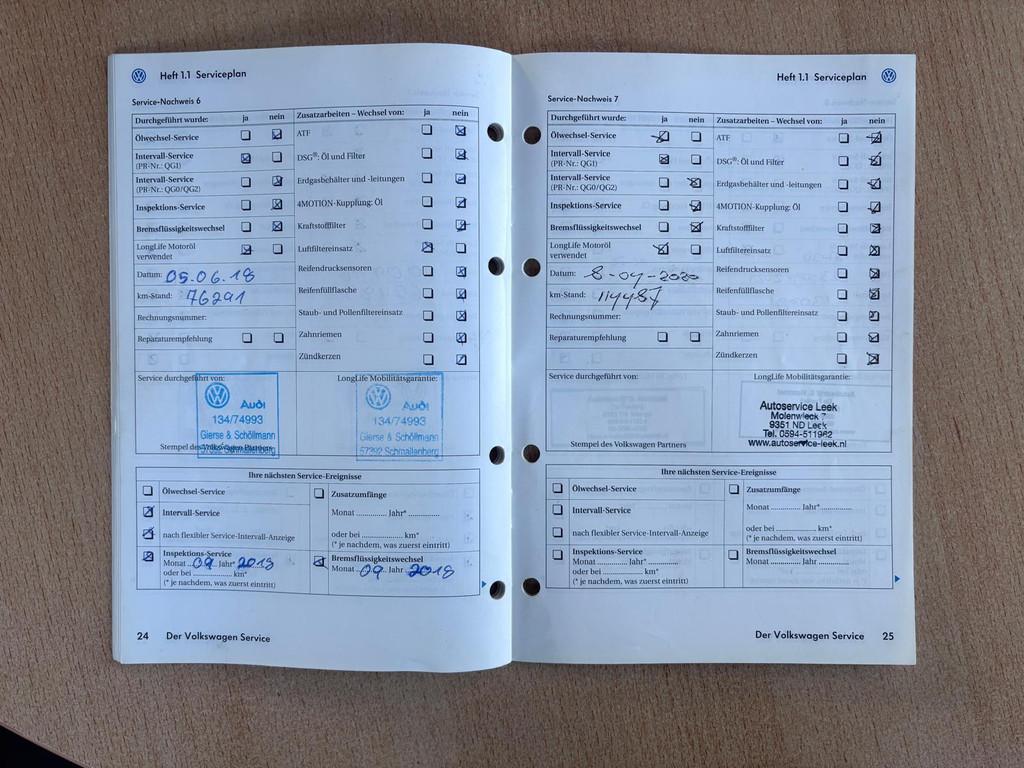 Heft 1.1 Serviceplan
Service-Nachweis 6
Durchgeführt wurde: ja nein
Ölwechsel-Service
Intervall-Service
(PR-Nr.: QG1)
Intervall-Service
(PR-Nr.: QG0/QG2)
Inspektions-Service
Bremsflüssigkeitswechsel
LongLife Motoröl
verwendet
Datum: 05.06.18
km-Stand: 76291
Rechnungsnummer:
Reparaturempfehlung
Zusatzarbeiten – Wechsel von: ja nein
ATF
DSG®: Öl und Filter
Erdgasbehälter und -leitungen
4MOTION-Kupplung: Öl
Kraftstofffilter
Luftfiltereinsatz
Reifendrucksensoren
Reifenfüllflasche
Staub- und Pollenfiltereinsatz
Zahnriemen
Zündkerzen
Service durchgeführt von:
Audi
134/74993
Gierse & Schöllmann
57392 Schmallenberg
Stempel des Volkswagen Partners
LongLife Mobilitätsgarantie:
Audi
134/74993
Gierse & Schöllmann
57392 Schmallenberg
Ihre nächsten Service-Ereignisse
Ölwechsel-Service
Intervall-Service
nach flexibler Service-Intervall-Anzeige
Inspektions-Service
Monat 09 Jahr* 2018
oder bei ............ km*
(* je nachdem, was zuerst eintritt)
Zusatzumfänge
Monat ............ Jahr* ............
oder bei ............ km*
(* je nachdem, was zuerst eintritt)
Bremsflüssigkeitswechsel
Monat 09 Jahr 2018
24 Der Volkswagen Service
Heft 1.1 Serviceplan
Service-Nachweis 7
Durchgeführt wurde: ja nein
Ölwechsel-Service
Intervall-Service
(PR-Nr.: QG1)
Intervall-Service
(PR-Nr.: QG0/QG2)
Inspektions-Service
Bremsflüssigkeitswechsel
LongLife Motoröl
verwendet
Datum: 8-04-2020
km-Stand: 114487
Rechnungsnummer:
Reparaturempfehlung
Zusatzarbeiten – Wechsel von: ja nein
ATF
DSG®: Öl und Filter
Erdgasbehälter und -leitungen
4MOTION-Kupplung: Öl
Kraftstofffilter
Luftfiltereinsatz
Reifendrucksensoren
Reifenfüllflasche
Staub- und Pollenfiltereinsatz
Zahnriemen
Zündkerzen
Service durchgeführt von:
Stempel des Volkswagen Partners
LongLife Mobilitätsgarantie:
Autoservice Leek
Molenwieck 7
9351 ND Leek
Tel. 0594-511962
www.autoservice-leek.nl
Ihre nächsten Service-Ereignisse
Ölwechsel-Service
Intervall-Service
nach flexibler Service-Intervall-Anzeige
Inspektions-Service
Monat ............ Jahr* ............
oder bei ............ km*
(* je nachdem, was zuerst eintritt)
Zusatzumfänge
Monat ............ Jahr* ............
oder bei ............ km*
(* je nachdem, was zuerst eintritt)
Bremsflüssigkeitswechsel
Monat ............ Jahr ............
Der Volkswagen Service 25